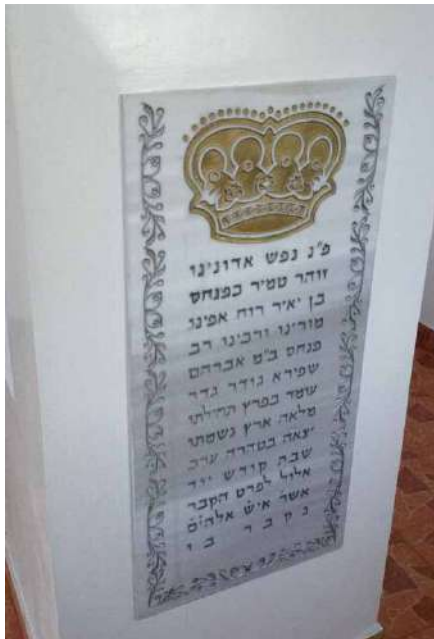 פ״נ נפש אדונינו
זוהר טמיר כפנחס
בן יאיר רוח אפינו
מורינו ורבינו רב
פנחס ב״מ אברהם
שפירא גודר גדר
עומד בפרץ תהילתו
מלאה ארץ נשמתו
יצאה בטהרה ערב
שבת קודש יוד
אלול לפרט הקבר
אשר איש אלהים
נקבר בו